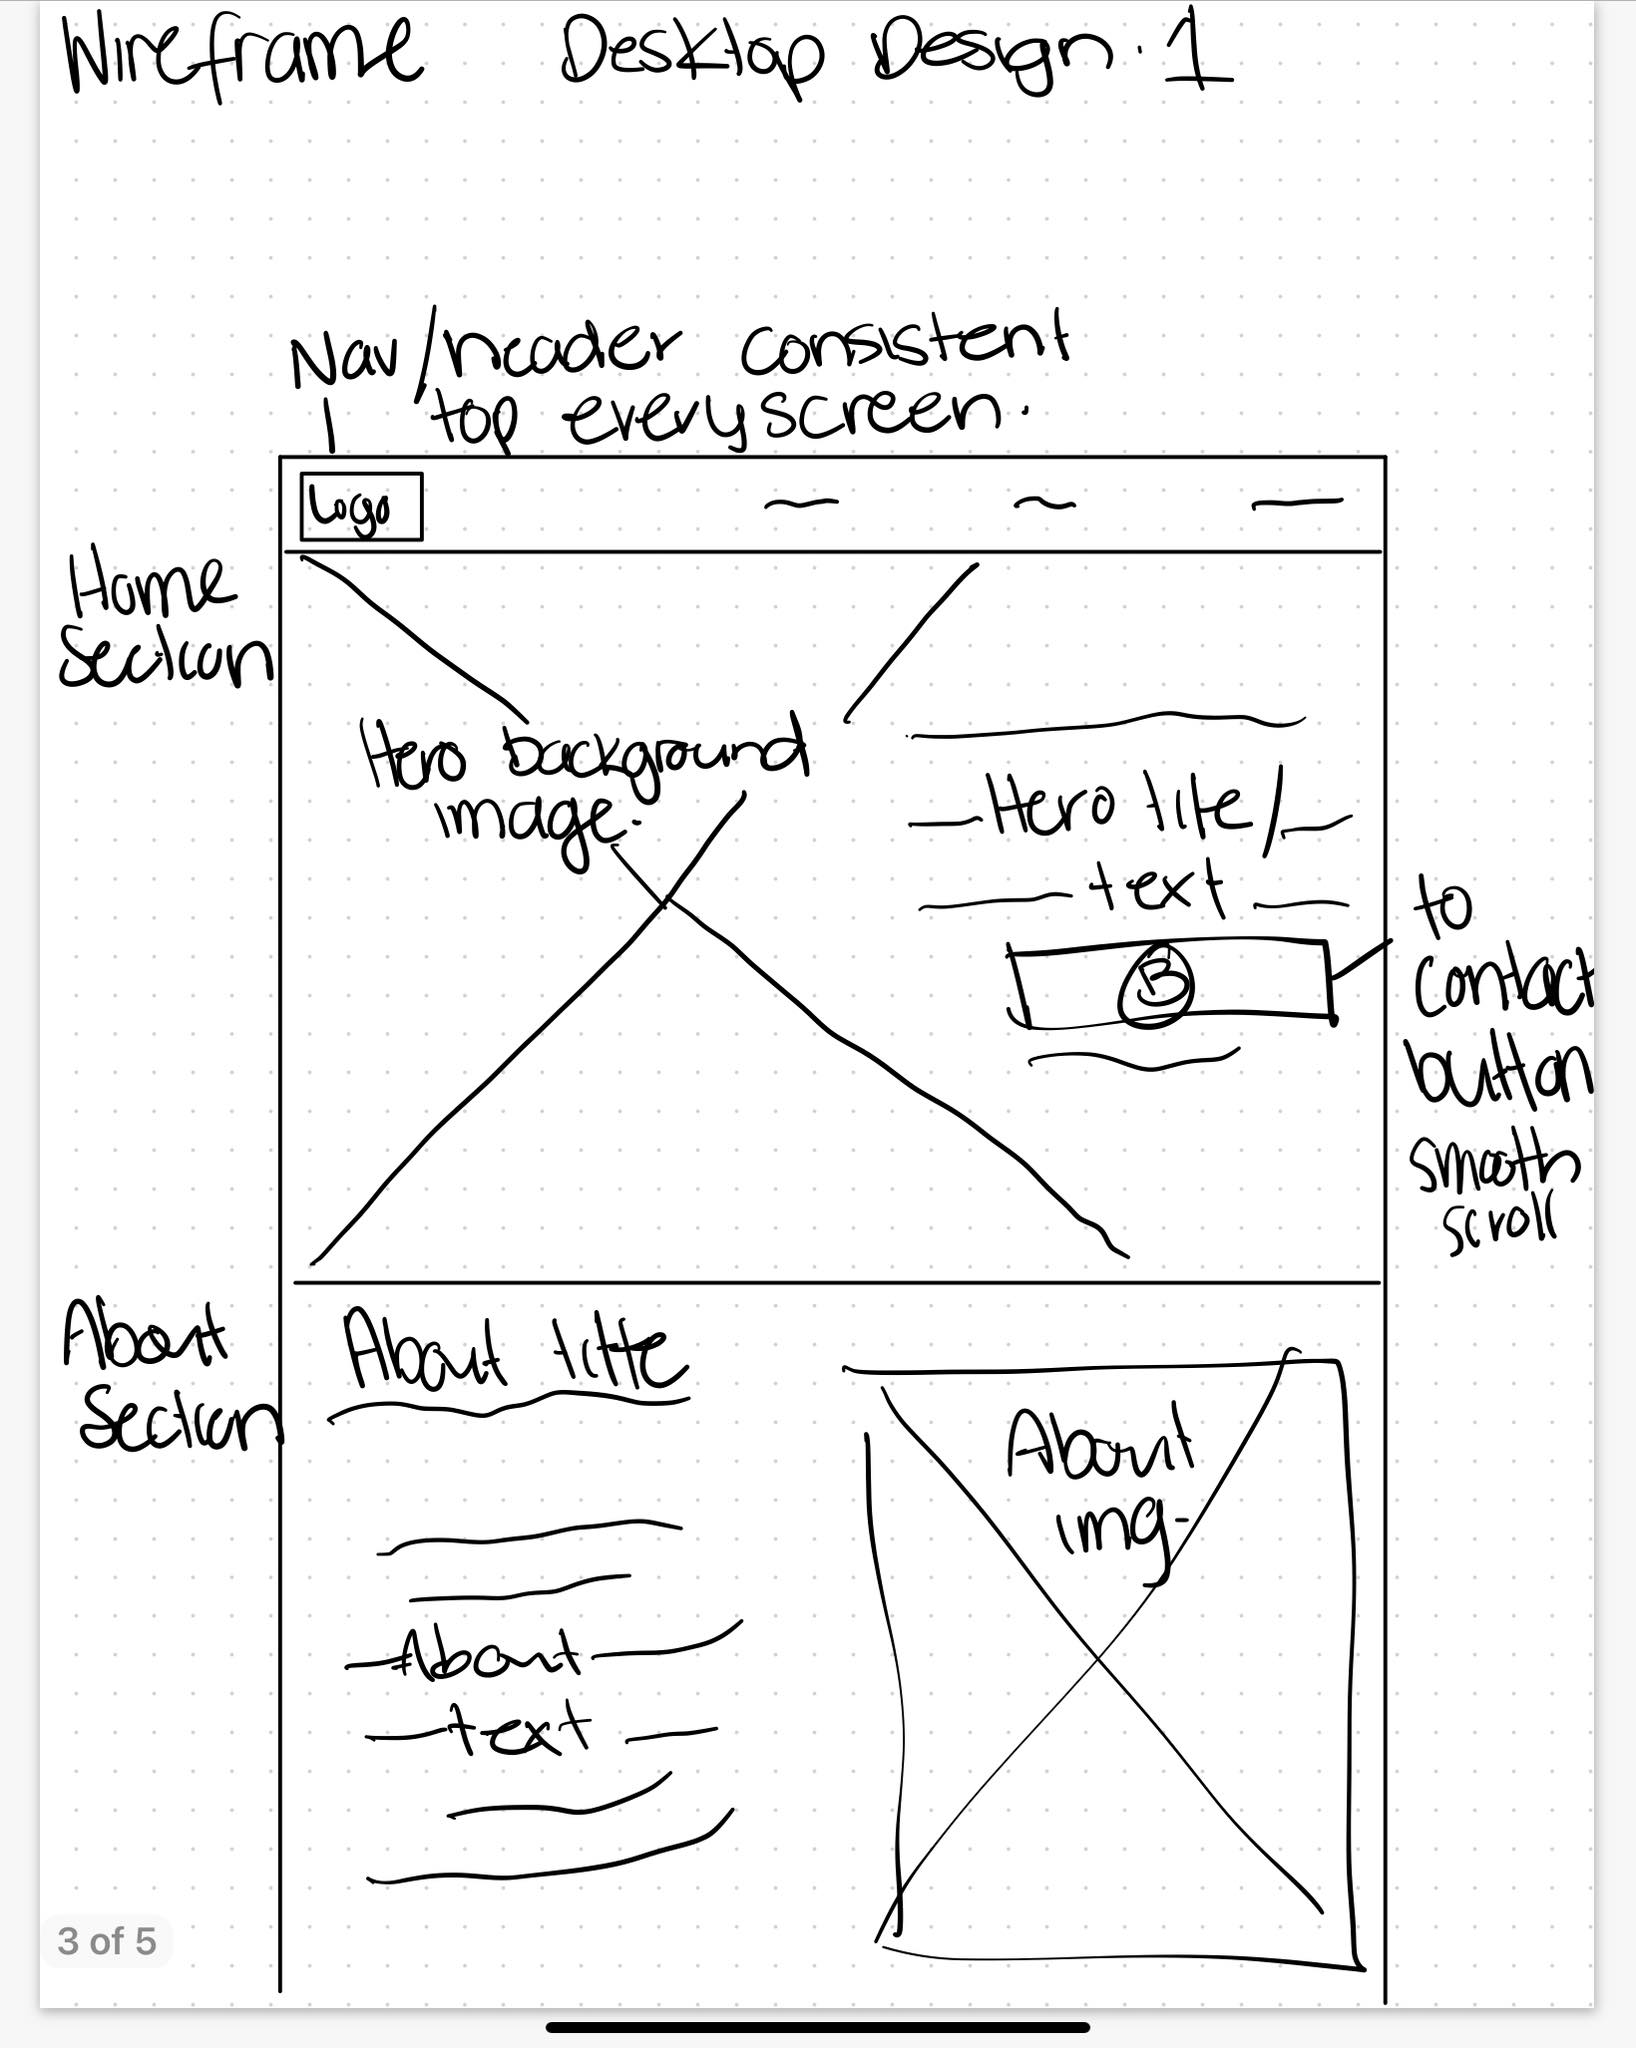 Wireframe Desktop Design. 1
Nav/header consistent
top every screen.
Logo
Home
Section
Hero background
image.
Hero title/
text
B
to
contact
button
smooth
scroll
About
Section
About title
About
img.
About
text
3 of 5